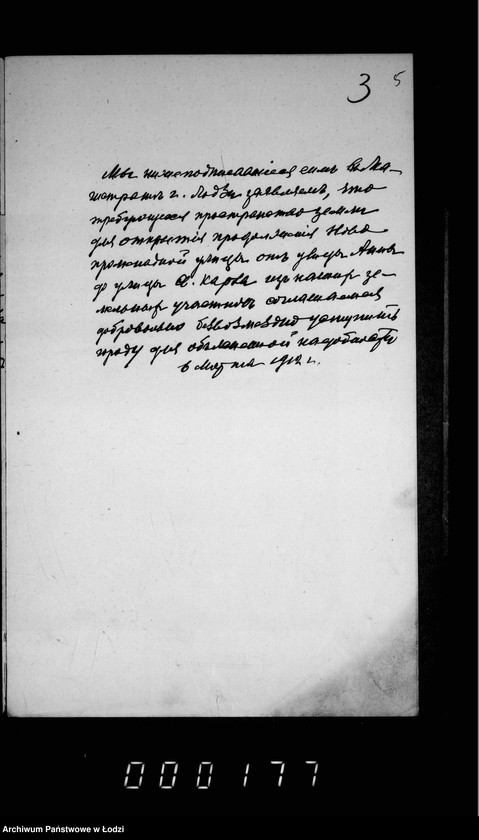 3 5
Мы нижеподписавшiеся симъ въ Ма-
гистратъ г. Лодзи заявляемъ, что
требующееся пространство земли
для открытiя продолженiя Ново
улицы отъ улицы Анны
до улицы К. Карла изъ нашихъ зе-
мельныхъ участковъ соглашаемся
добровольно безвозмездно уступить
городу для надобности
6 Марта 1912 г.
000177
Archiwum Państwowe w Łodzi